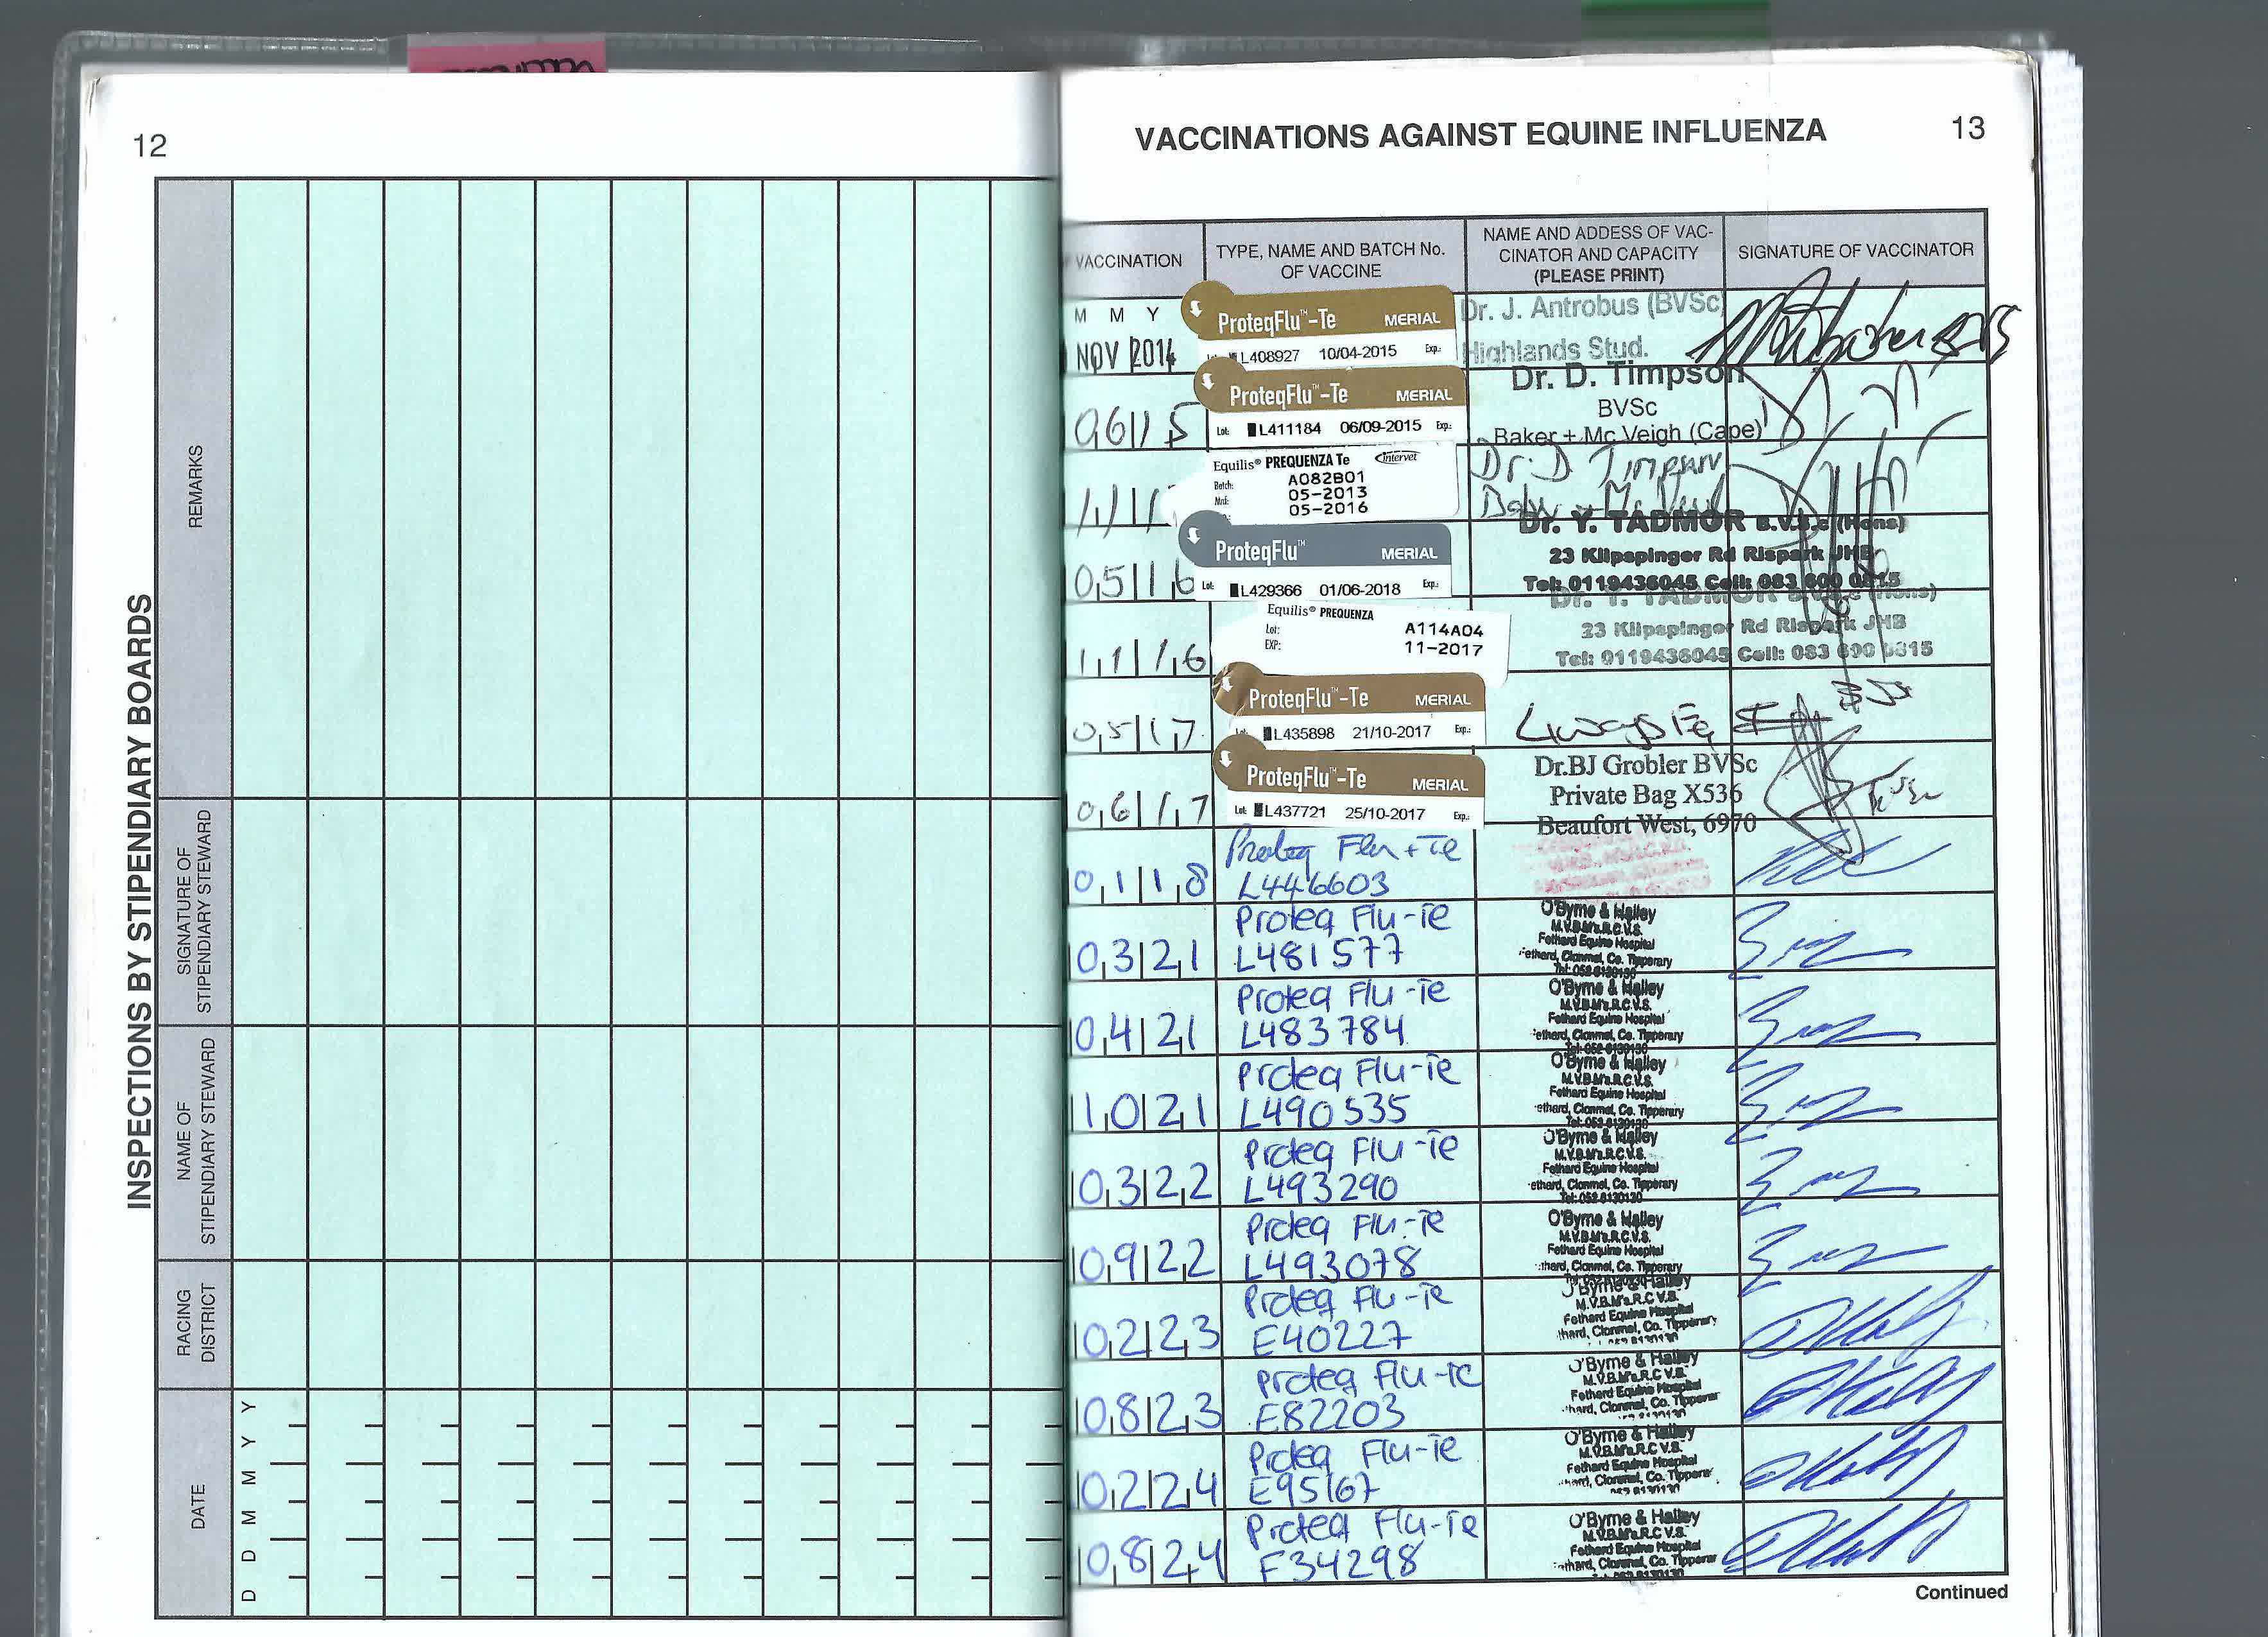 12
INSPECTIONS BY STIPENDIARY BOARDS
REMARKS
SIGNATURE OF
STIPENDIARY STEWARD
NAME OF
STIPENDIARY STEWARD
RACING
DISTRICT
DATE
D D M M Y Y
VACCINATIONS AGAINST EQUINE INFLUENZA
13
VACCINATION
TYPE, NAME AND BATCH No.
OF VACCINE
NAME AND ADDESS OF VAC-
CINATOR AND CAPACITY
(PLEASE PRINT)
SIGNATURE OF VACCINATOR
M M Y
NOV 2014
ProteqFlu™-Te MERIAL
L408927 10/04-2015 Exp.:
Dr. J. Antrobus (BVSc
Highlands Stud.
06 15
ProteqFlu™-Te MERIAL
Lot: L411184 06/09-2015 Exp.:
Dr. D. Timpson
BVSc
Baker + Mc Veigh (Cape)
Equilis® PREQUENZA Te Intervet
Batch: A082B01
Mnf: 05-2013
05-2016
Dr. D Timpson
05 16
ProteqFlu™ MERIAL
Lot: L429366 01/06-2018 Exp.:
Dr. Y. TADMOR B.V.S.c (Hons)
23 Klipspinger Rd Rispark JHB
Tel: 0119436045 Cell: 083 600 0815
11 16
Equilis® PREQUENZA
Lot: A114A04
EXP: 11-2017
Dr. Y. TADMOR B.V.S.c (Hons)
23 Klipspinger Rd Rispark JHB
Tel: 0119436045 Cell: 083 600 0815
05 17
ProteqFlu™-Te MERIAL
L435898 21/10-2017 Exp.:
06 17
ProteqFlu™-Te MERIAL
Lot: L437721 25/10-2017 Exp.:
Dr.BJ Grobler BVSc
Private Bag X536
Beaufort West, 6970
01 18
Proteq Flu + Te
L446603
03 21
Proteq Flu-Te
L481577
O'Byrne & Halley
M.V.B.M's.R.C.V.S.
Fethard Equine Hospital
Fethard, Clonmel, Co. Tipperary
Tel: 052-6130130
04 21
Proteq Flu-Te
L483784
O'Byrne & Halley
M.V.B.M's.R.C.V.S.
Fethard Equine Hospital
ethard, Clonmel, Co. Tipperary
Tel: 052-6130130
10 21
Proteq Flu-Te
L490535
O'Byrne & Halley
M.V.B.M's.R.C.V.S.
Fethard Equine Hospital
ethard, Clonmel, Co. Tipperary
Tel: 052-6130130
03 22
Proteq Flu-Te
L493290
O'Byrne & Halley
M.V.B.M's.R.C.V.S.
Fethard Equine Hospital
ethard, Clonmel, Co. Tipperary
Tel: 052-6130130
09 22
Proteq Flu-Te
L493078
O'Byrne & Halley
M.V.B.M's.R.C.V.S.
Fethard Equine Hospital
thard, Clonmel, Co. Tipperary
02 23
Proteq Flu-Te
E40227
O'Byrne & Halley
M.V.B.M's.R.C V.S.
Fethard Equine Hospital
thard, Clonmel, Co. Tipperary
08 23
Proteq Flu-Te
E82203
O'Byrne & Halley
M.V.B.M's.R.C V.S.
Fethard Equine Hospital
hard, Clonmel, Co. Tipperar
02 24
Proteq Flu-Te
E95167
O'Byrne & Halley
M.V.B.M's.R.C V.S.
Fethard Equine Hospital
hard, Clonmel, Co. Tipperar
08 24
Proteq Flu-Te
F34298
O'Byrne & Halley
M.V.B.M's.R.C V.S.
Fethard Equine Hospital
thard, Clonmel, Co. Tipperar
Continued